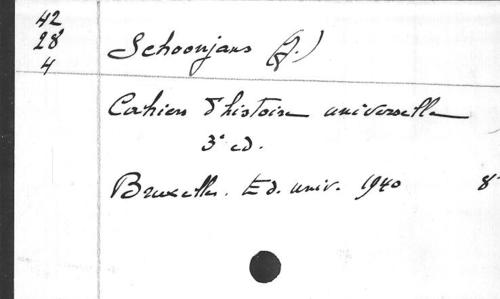 42
28
4
Schoonjans (J.)
Cahiers d'histoire universelle
3e ed.
Bruxelles. Ed. univ. 1940 8°